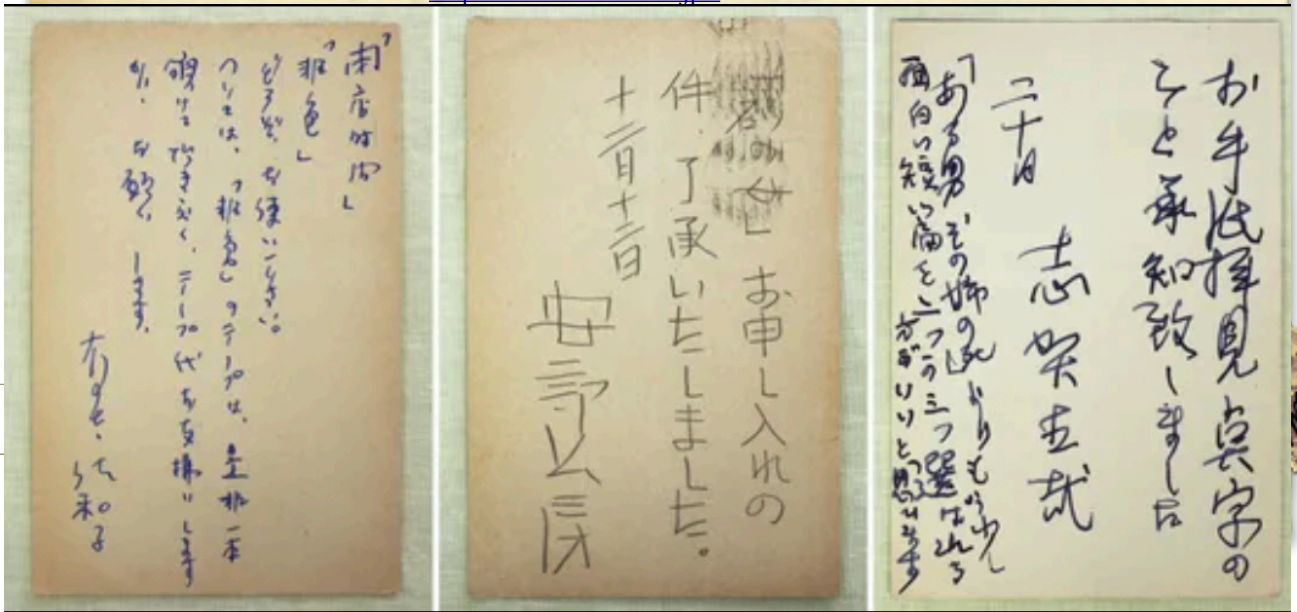 「閉店時間」
「非色」
どうぞ、お使い下さい。
ついては、「非色」のテープは、是非一本
頒けて頂きたく、テープ代はお支拂いします
から、お願い します。
有吉佐和子
「砂の女」お申し入れの
件、了承いたしました。
十二月十二日
安部公房
お手紙拝見点字の
こと承知致しました
二十日
志賀直哉
「ある男 その姉の死」よりもう少し
面白い短い篇を二つか三つ選ばれる
方がいいと思ひます